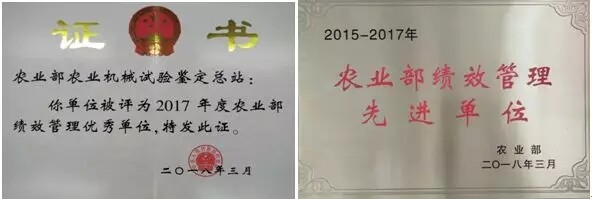 证 书
农业部农业机械试验鉴定总站：
你单位被评为2017年度农业部
绩效管理优秀单位，特发此证。
二〇一八年三月
2015-2017年
农业部绩效管理
先进单位
农业部
二〇一八年三月